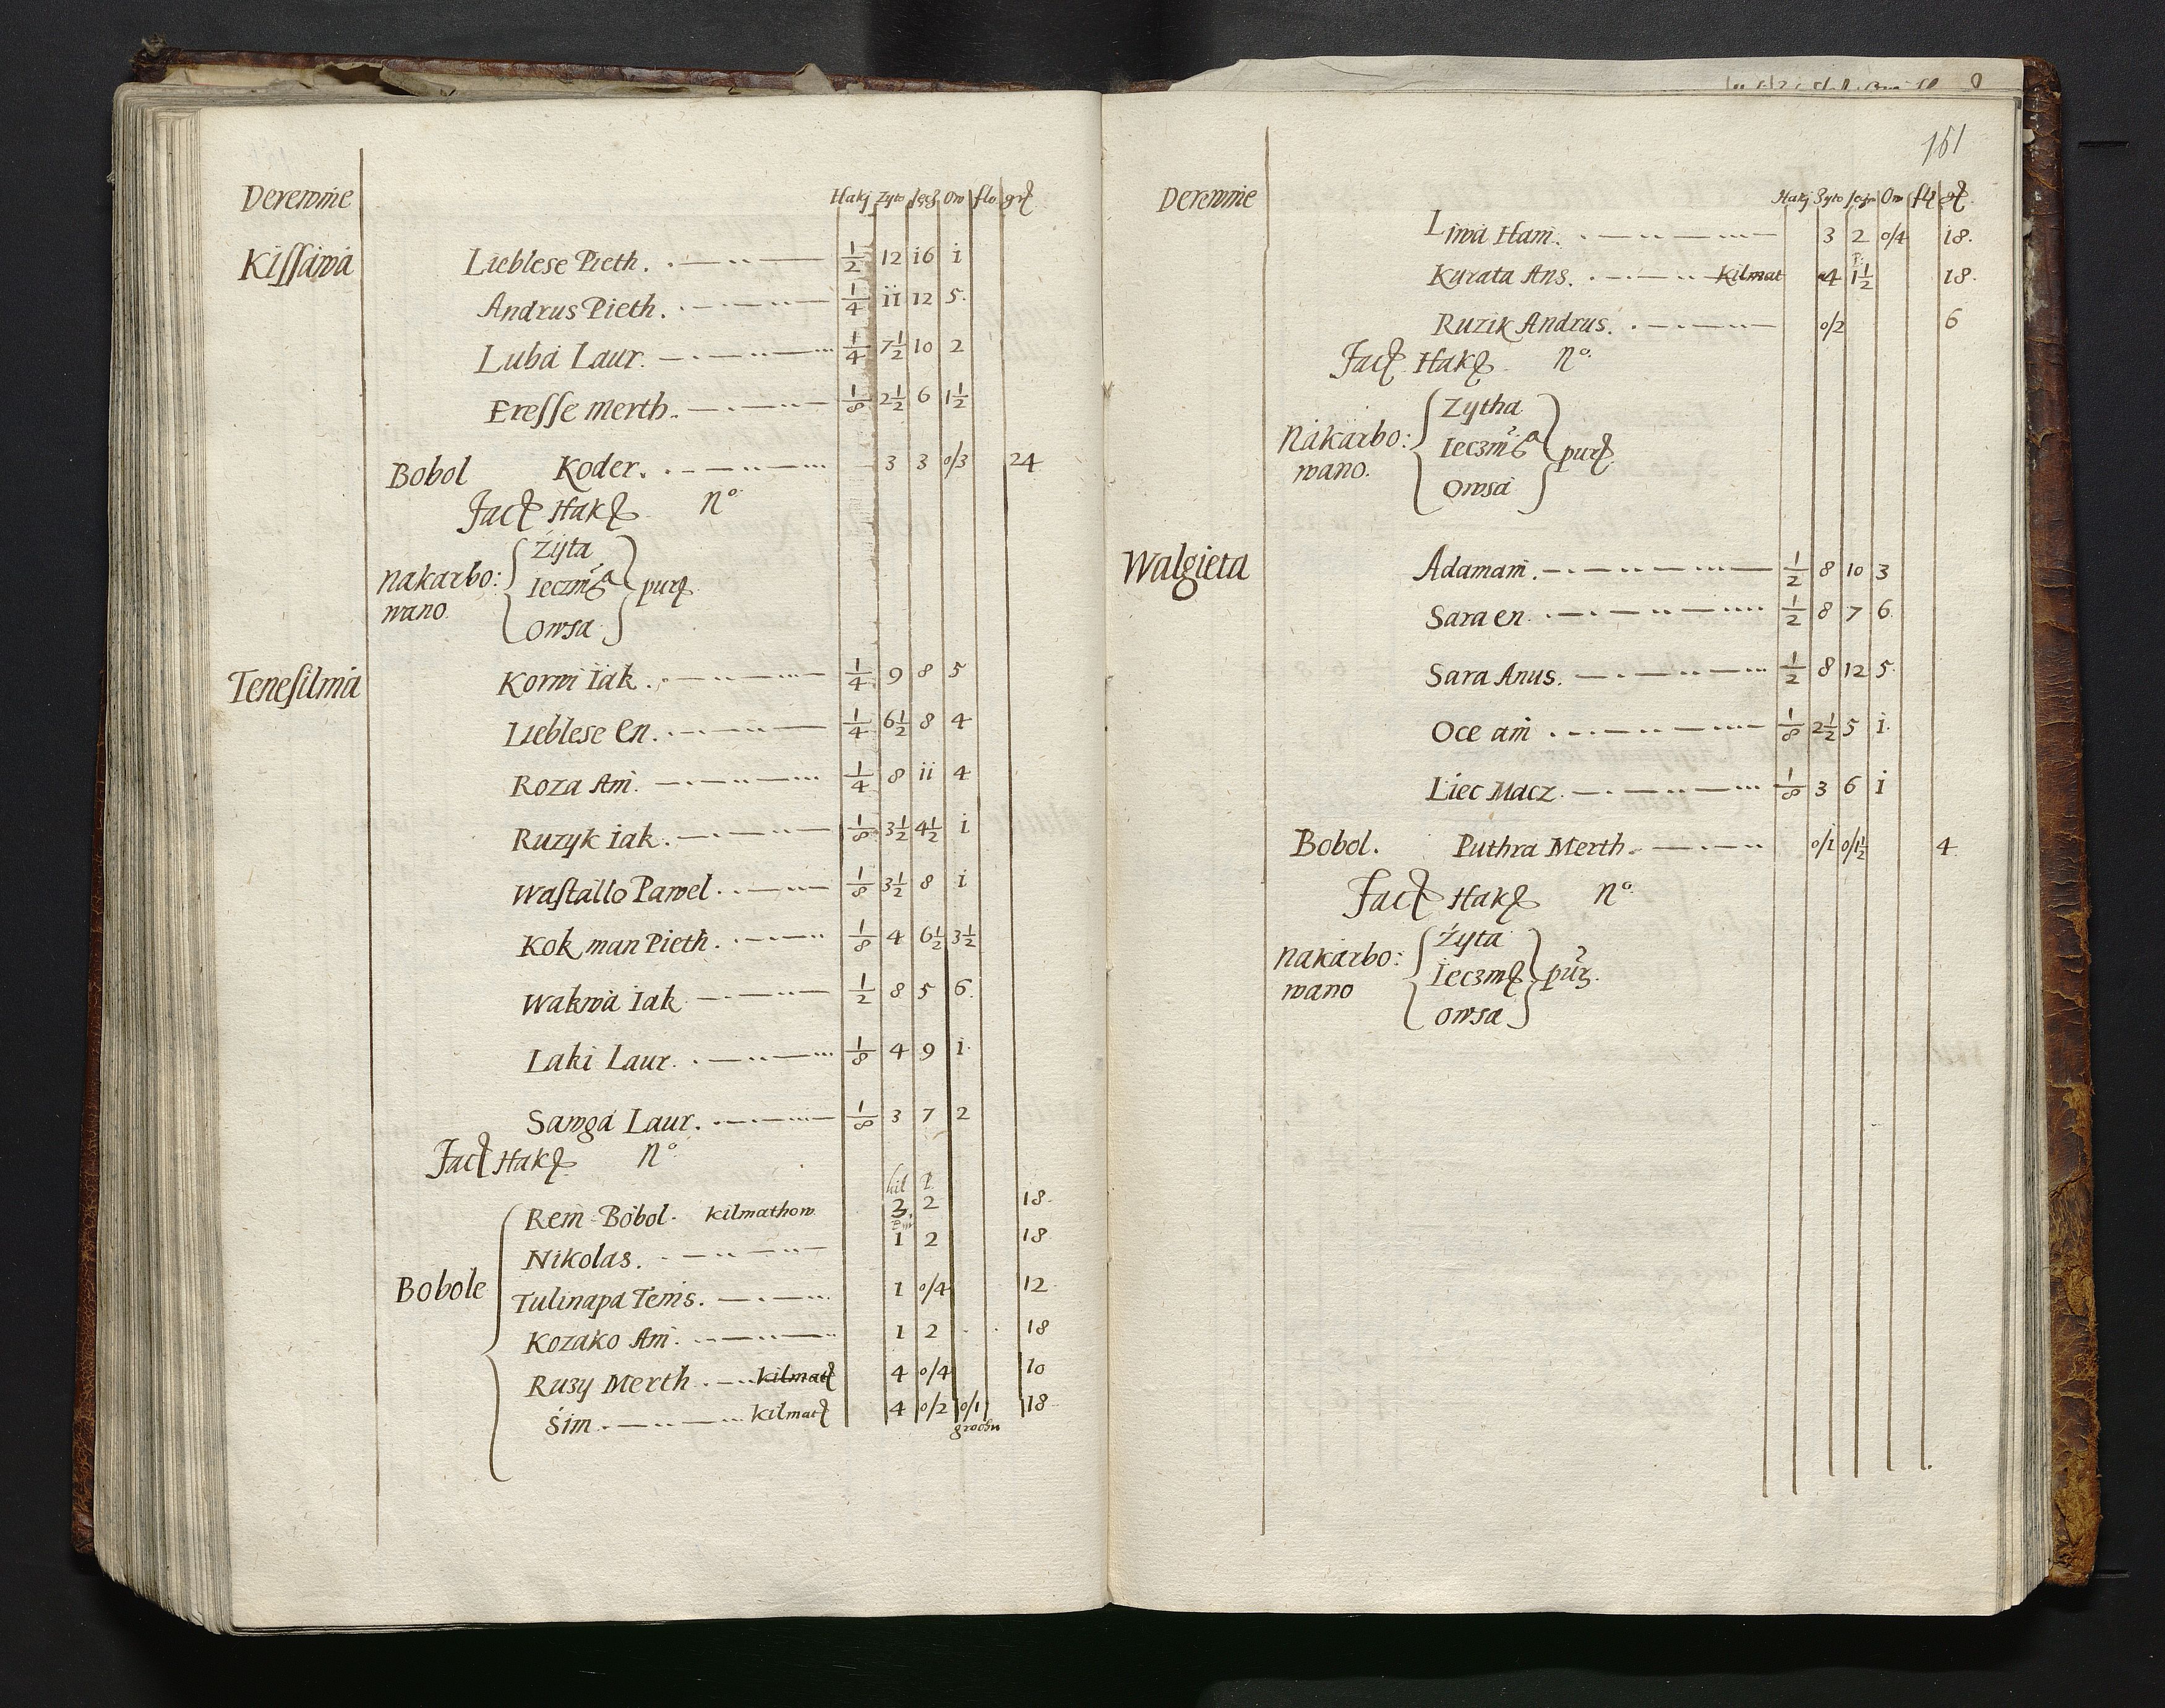 Derewnie Hakj Zyto Jecz Ow flo grҿ
Kissawa Lieblese Pieth. 1/2 12 i6 i
Andrus Pieth. 1/4 ii 12 5.
Luba Laur. 1/4 7 1/2 10 2
Eresse Merth. 1/8 2 1/2 6 1 1/2
Bobol Koder. 3 3 0/3 24
Facҿ Hakҿ No.
Nakarbo: wano
Żyta
Ieczm
Owsa
purҿ
Tenesilma Korwi Iak. 1/4 9 8 5
Lieblese En. 1/4 6 1/2 8 4
Roza Ani. 1/4 8 ii 4
Ruzyk Iak. 1/8 3 1/2 4 1/2 i
Wastallo Pawel. 1/8 3 1/2 8 i
Kok man Pieth. 1/8 4 6 1/2 3 1/2
Wakwa Iak 1/2 8 5 6.
Laki Laur. 1/8 4 9 i.
Sawga Laur. 1/8 3 7 2
Facҿ Hakҿ No.
kil P.
Rein Bobol. Kilmathow 3. 2 18.
Nikolas. 1 2 18.
Bobole Tulinapa Tenis. 1 0/4 12.
Kozako Ani. 1 2 18
Ruzy Merth. Kilmatҿ 4 0/4 10
Sim. Kilmatҿ 4 0/2 0/1 18
grochu
161
Derewnie Hakj Zyto Jecz Ow flҿ gҿ
Liwa Ham. 3 2 0/4 18.
P.
Kurata Ans. Kilmat 4 1 1/2 18.
Ruzik Andrus. 0/2 6
Facҿ Hakҿ No.
Nakarbo: wano.
Zytha
Ieczm
Owsa
purҿ
Walgieta Adamani. 1/2 8 10 3
Sara en. 1/2 8 7 6.
Sara Anus. 1/2 8 12 5.
Oce ani 1/8 2 1/2 5 i.
Liec Macz. 1/8 3 6 i
Bobol. Puthra Merth. 0/1 0/1 1/2 4.
Facҿ Hakҿ No.
Nakarbo: wano
Żyta
Ieczmҿ
owsa
pur.